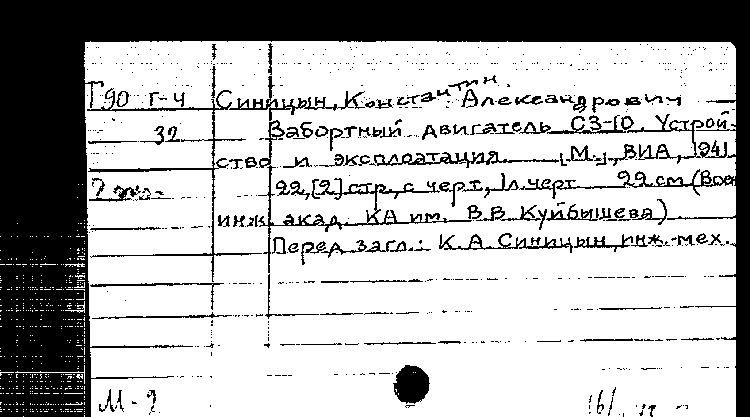 Г90 Г-4 Синицын, Константин Александрович
32 Забортный двигатель СЗ-10. Устрой-
ство и эксплоатация. [М.], ВИА, 1941
22, [2] стр., с черт., 1 л. черт. 22 см (Воен
инж. акад. КА им. В.В. Куйбышева)
Перед загл.: К.А. Синицын, инж.-мех.
М-